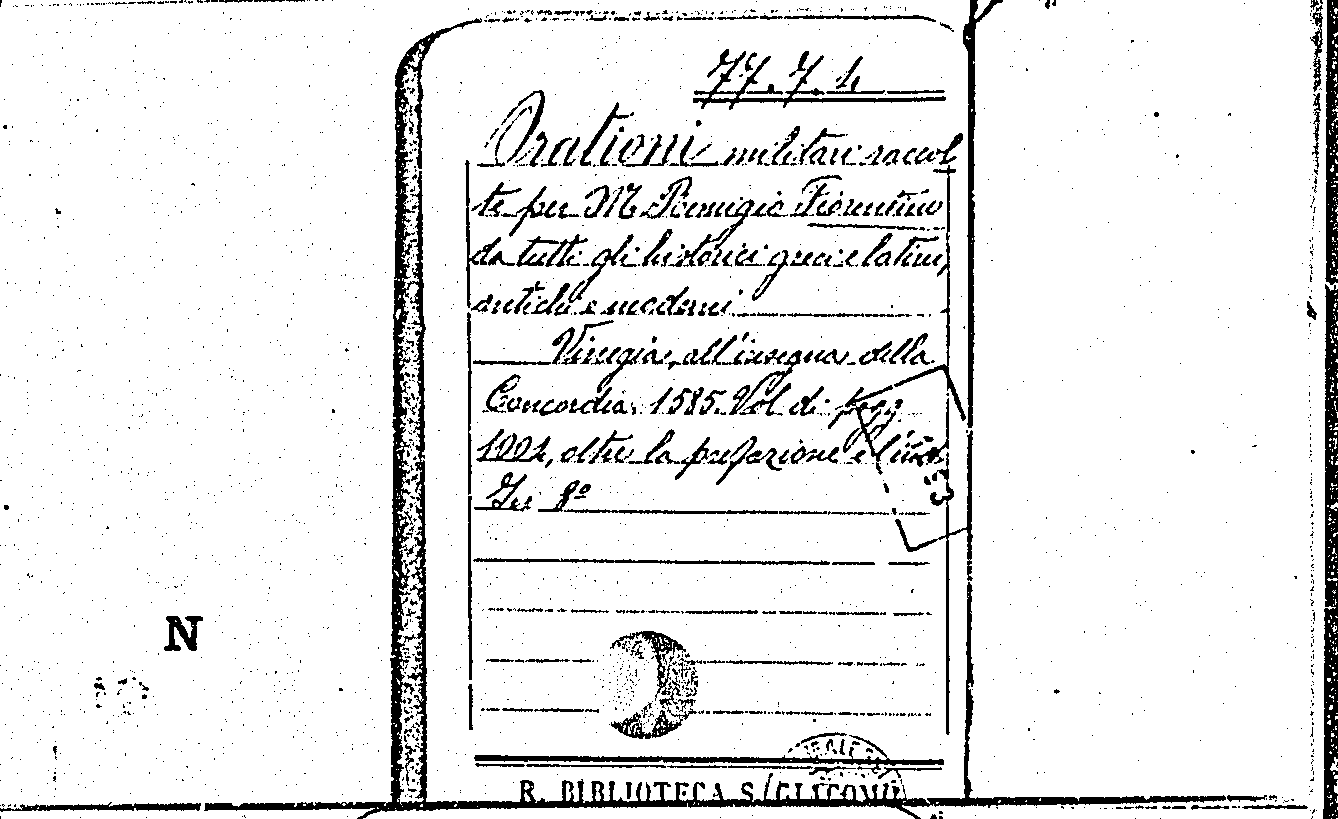 77.7.4
Orationi militari raccol
te per M Remigio Fiorentino
da tutti gli historici greci e latini,
antichi e moderni
Vinegia, all'insegna della
Concordia. 1585. Vol di pagg
1004, oltre la prefazione e l'ind.
In 8º
N
R. BIBLIOTECA S. GIACOMO